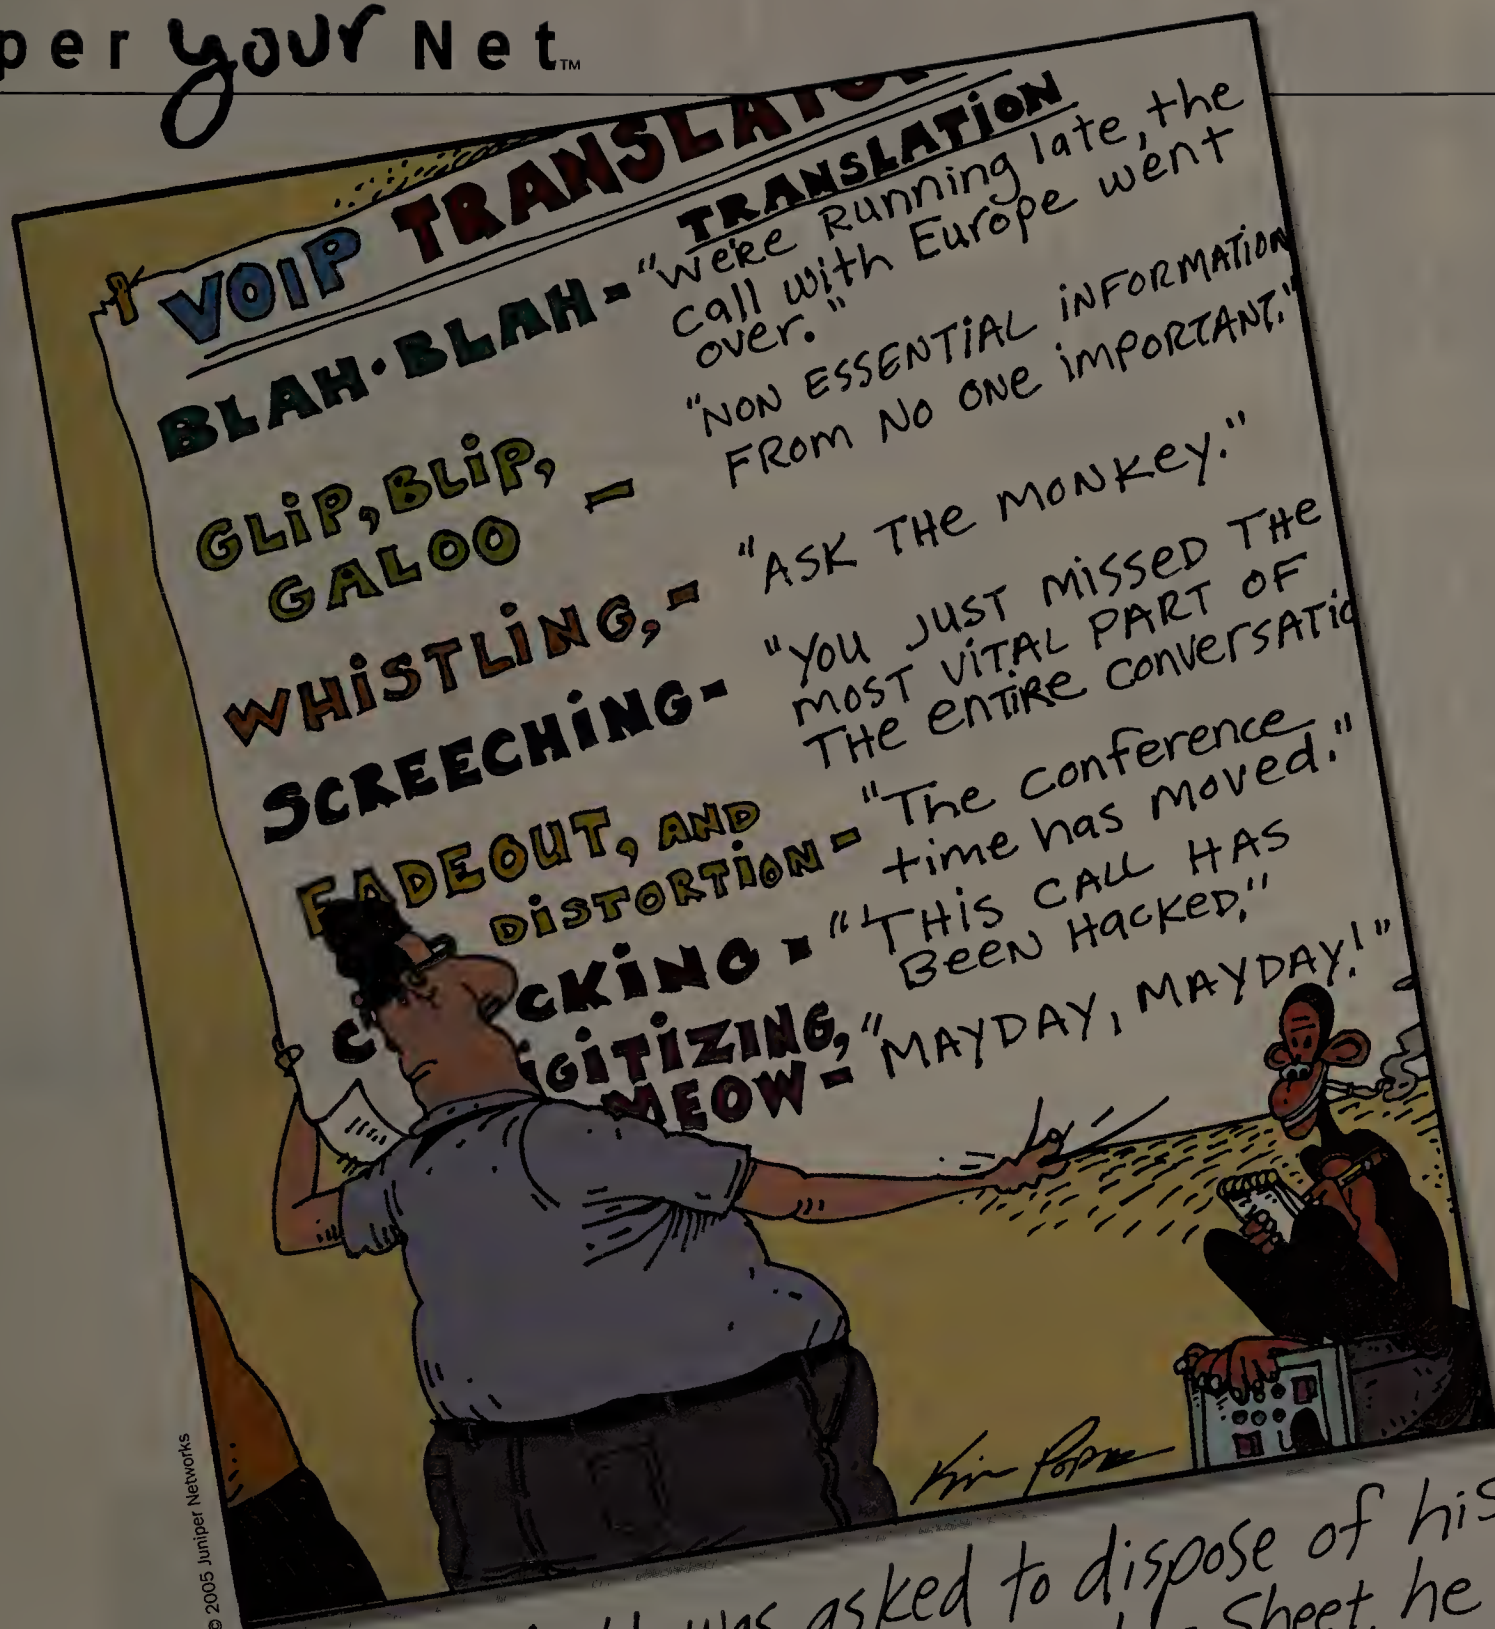 per your Net™
VOIP TRANSLATOR
TRANSLATION
BLAH·BLAH - "We're Running late, the
call with Europe went
over."
GLIP, BLIP,
GALOO - "NON ESSENTIAL INFORMATION
FROM NO ONE IMPORTANT."
WHISTLING, - "ASK THE MONKEY."
SCREECHING - "YOU JUST MISSED THE
MOST VITAL PART OF
THE ENTIRE CONVERSATIO
FADEOUT, AND
DISTORTION - "The conference
time has moved."
C CKING - "THIS CALL HAS
BEEN HACKED."
GITIZING,
MEOW - "MAYDAY, MAYDAY!"
© 2005 Juniper Networks
was asked to dispose of his
Sheet, he